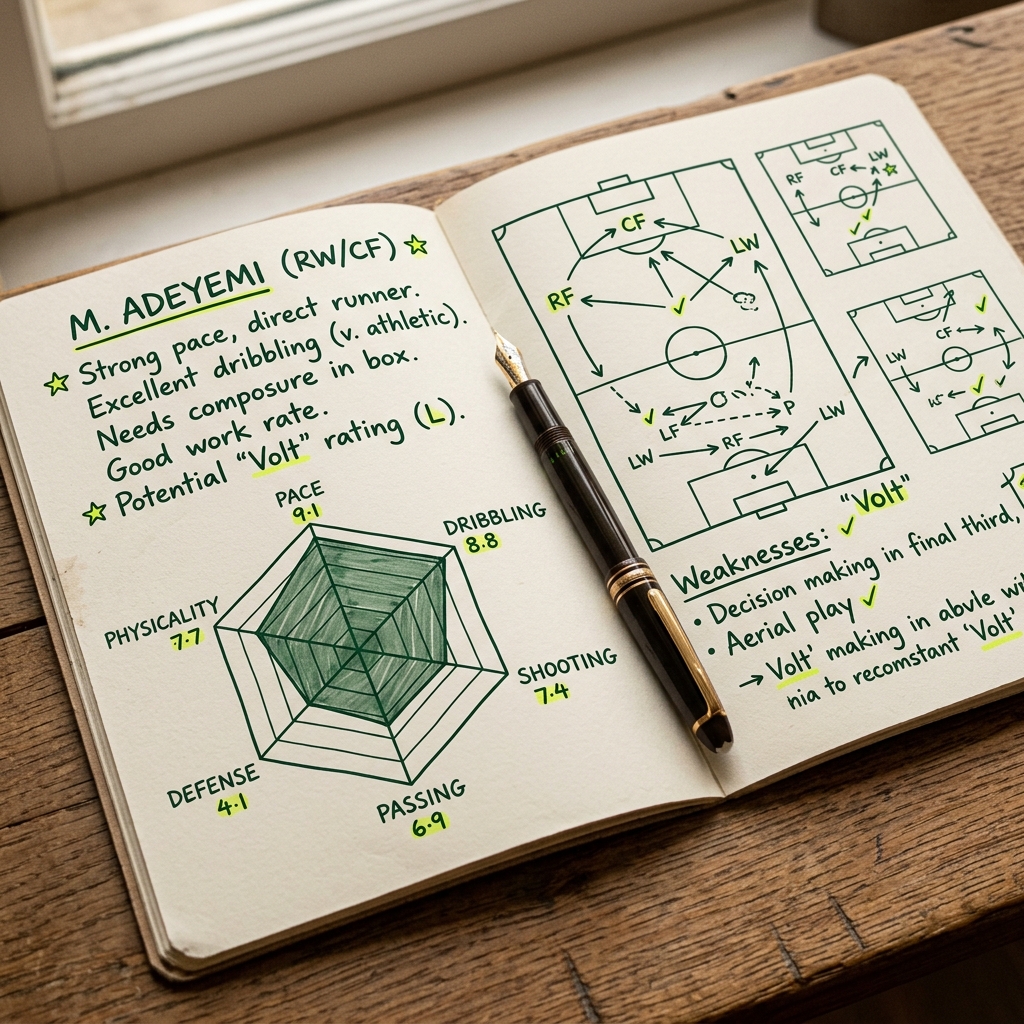 M. ADEYEMI (RW/CF)
Strong pace, direct runner.
Excellent dribbling (v. athletic).
Needs composure in box.
Good work rate.
Potential "Volt" rating (L).
PACE
9.1
DRIBBLING
8.8
PHYSICALITY
7.7
SHOOTING
7.4
DEFENSE
4.1
PASSING
6.9
CF
LW
RF
P
LF
LW
RF
LW
RF
CF
LW
CF
LW
"Volt"
Weaknesses:
• Decision making in final third,
• Aerial play
→ Volt' making in abvle wi
nia to recomstant 'Volt'